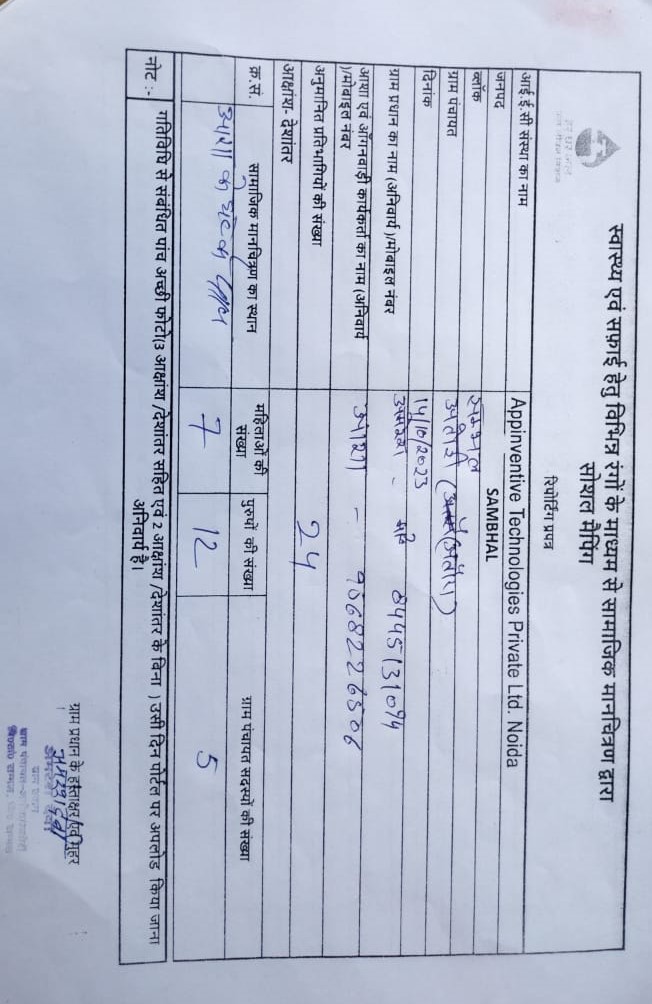 स्वास्थ्य एवं सफाई हेतु विभिन्न रंगों के माध्यम से सामाजिक मानचित्रण द्वारा
सोशल मैपिंग
रिपोर्टिंग प्रपत्र
आई.ई.सी संस्था का नाम Appinventive Technologies Private Ltd. Noida
जनपद SAMBHAL
ब्लॉक सम्भल
ग्राम पंचायत
दिनांक 14/6/2023
ग्राम प्रधान का नाम (अनिवार्य )/मोबाइल नंबर 8445131094
आशा एवं आँगनवाड़ी कार्यकर्ता का नाम (अनिवार्य आशा - 9568226506
)/मोबाइल नंबर
अनुमानित प्रतिभागियों की संख्या 24
आक्षांय- देशांतर
क्र.सं. सामाजिक मानचित्रण का स्थान महिलाओं की संख्या पुरुषों की संख्या ग्राम पंचायत सदस्यों की संख्या
7 12 5
नोट :- गतिविधि से संबंधित पांच अच्छी फोटो(3 आक्षांय /देशांतर सहित एवं 2 आक्षांय / देशांतर के बिना ) उसी दिन पोर्टल पर अपलोड किया जाना
अनिवार्य है।
ग्राम प्रधान के हस्ताक्षर एवं मुहर